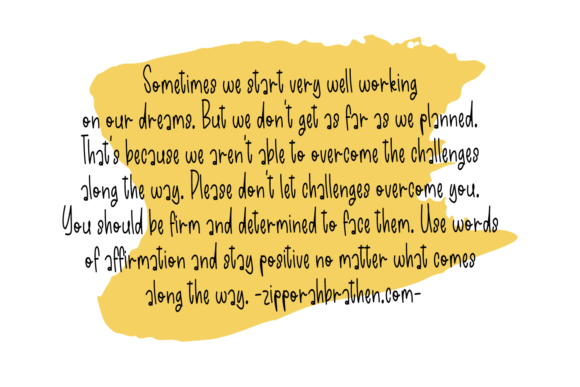 Sometimes we start very well working
on our dreams. But we don't get as far as we planned.
That's because we aren't able to overcome the challenges
along the way. Please don't let challenges overcome you.
You should be firm and determined to face them. Use words
of affirmation and stay positive no matter what comes
along the way. -zipporahbrathen.com-